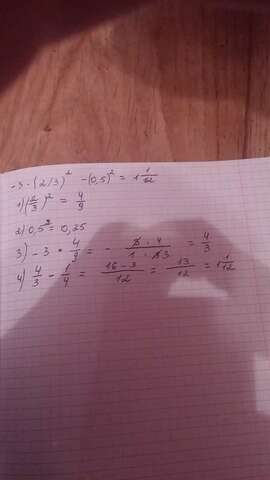 -3 · (2/3)² - (0,5)² = 1 1/12
1) (2/3)² = 4/9
2) 0,5² = 0,25
3) -3 · 4/9 = - 3 · 4 / 1 · 93 = 4/3
4) 4/3 - 1/4 = 16-3/12 = 13/12 = 1 1/12